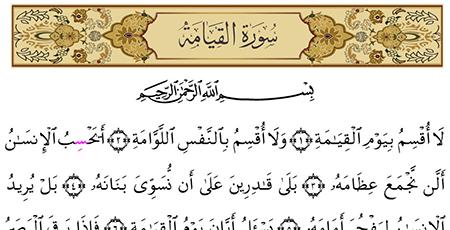 سُورَةُ القِيَامَةِ
بِسْمِ ٱللَّهِ ٱلرَّحْمَٰنِ ٱلرَّحِيمِ
لَا أُقْسِمُ بِيَوْمِ ٱلْقِيَٰمَةِ ۝١ وَلَا أُقْسِمُ بِٱلنَّفْسِ ٱللَّوَّامَةِ ۝٢ أَيَحْسِبُ ٱلْإِنسَٰنُ
أَلَّن نَّجْمَعَ عِظَامَهُۥ ۝٣ بَلَىٰ قَٰدِرِينَ عَلَىٰ أَن نُّسَوِّىَ بَنَانَهُۥ ۝٤ بَلْ يُرِيدُ
ٱلْإِنسَٰنُ لِيَفْجُرَ أَمَامَهُۥ ۝٥ يَسْـَٔلُ أَيَّانَ يَوْمُ ٱلْقِيَٰمَةِ ۝٦ فَإِذَا بَرِقَ ٱلْبَصَرُ